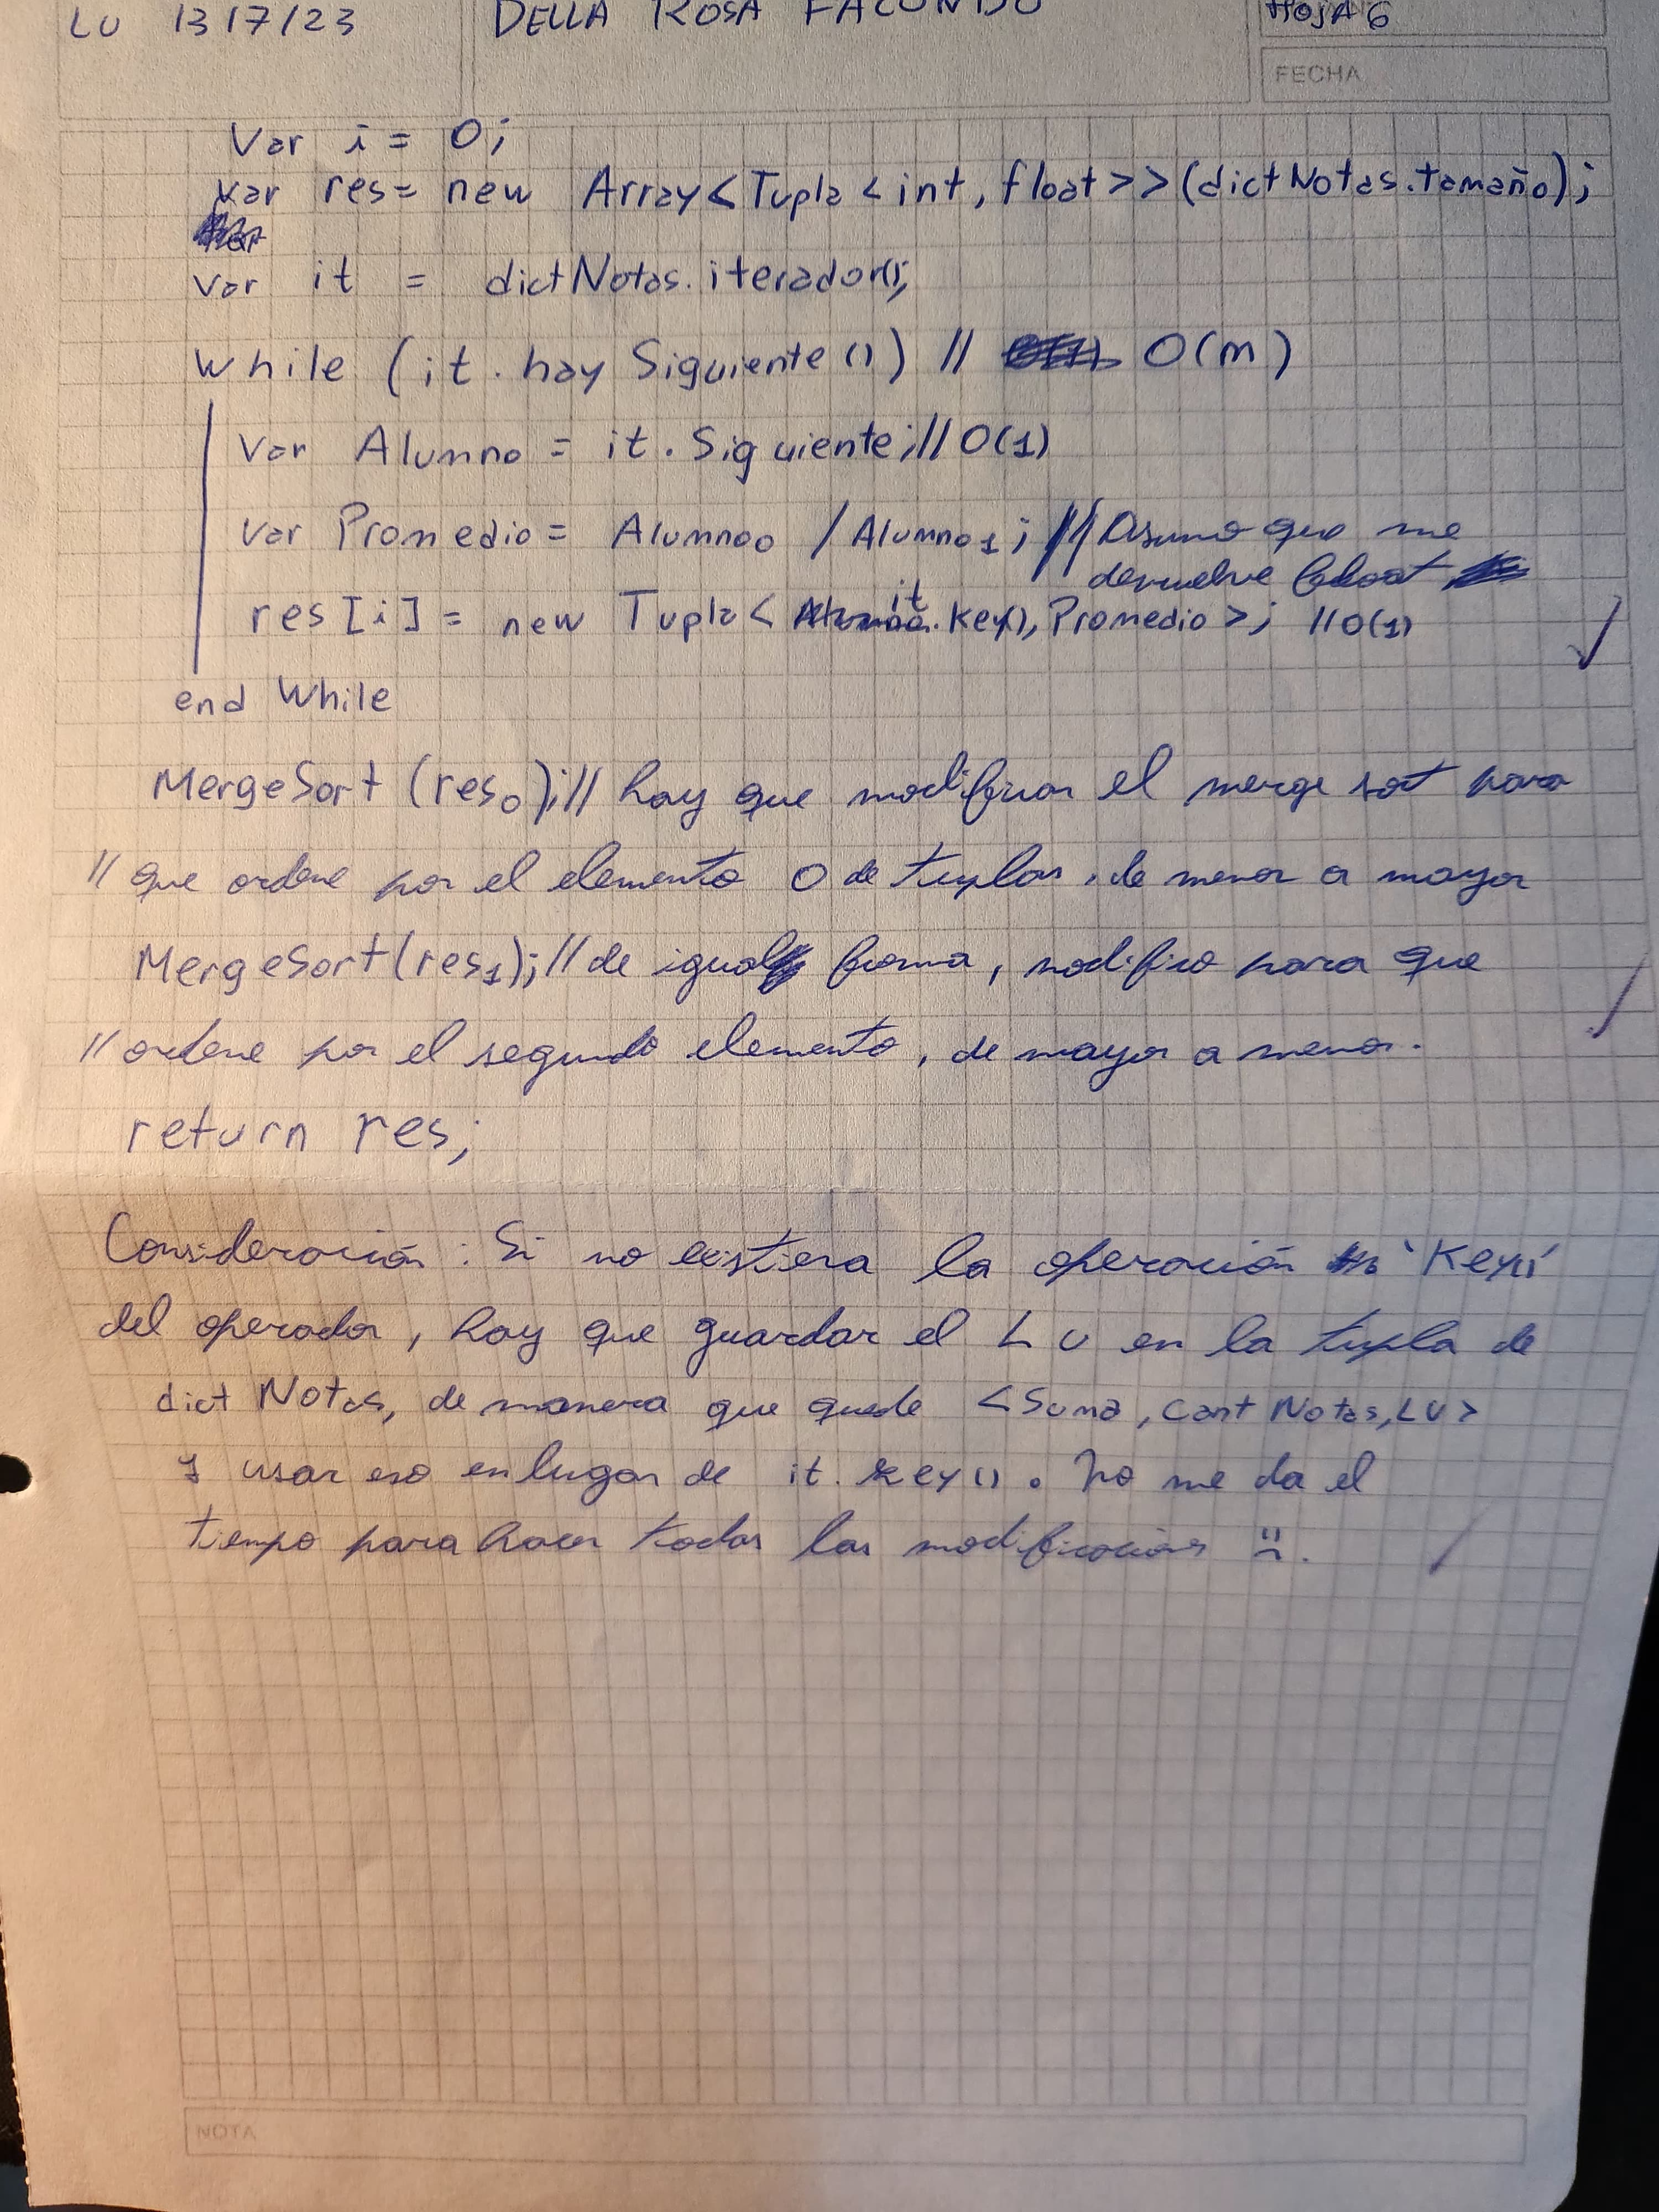 LU 1317/23 DELLA ROSA FACUNDO HOJA 6
FECHA
Var i = 0;
Var res = new Array<Tupla<int, float>>(dictNotas.tamaño);
Var it = dictNotas.iterador();
While (it.haySiguiente()) // O(m)
Var Alumno = it.Siguiente; // O(1)
Var Promedio = Alumno0 / Alumno1; // Asumo que me
devuelve float
res[i] = new Tupla<it.Key(), Promedio>; // O(1)
end While
MergeSort(res0); // hay que modificar el merge sort para
// que ordene por el elemento 0 de tuplas, de menor a mayor
MergeSort(res1); // de igual forma, modifico para que
// ordene por el segundo elemento, de mayor a menor.
return res;
Consideración: Si no existiera la operación 'Key()'
del operador, hay que guardar el LU en la tupla de
dictNotas, de manera que quede <Suma, cantNotas, LU>
y usar eso en lugar de it.Key(). No me da el
tiempo para hacer todas las modificaciones :(.
NOTA